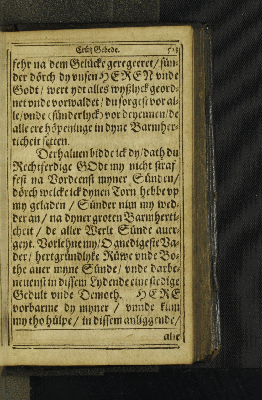 Crütz Gebede.
sehr na dem Gelücke geregeeret / sün-
der dörch dy vnsen HEREN vnde
Godt / wert ydt alles wyßlyck geord-
net vnde vorwaldet / du sorgest vor al-
le / vnde (sünderlyck) vor de yennen / de
alle ere höpeninge in dyne Barmher-
ticheit setten.
Derhaluen bidde ick dy / dath du
Rechtferdige GOdt my nicht straf-
fest na Vordeenst myner Sünden /
dörch welcke ick dynen Torn hebbe vp
my geladen / Sünder nim my wed-
der an / na dyner groten Barmherti-
cheit / de aller Werlt Sünde auer-
geyt. Vorlehne my / O gnedigeste Va-
der / hertgründlyke Rüwe vnde Bo-
the auer myne Sünde / vnde darbe-
neuenst in dissem Lydende eine stedige
Gedult vnde Demoth. HERE
vorbarme dy myner / vnnde kum
my tho hülpe / in dissem anliggende /
alse